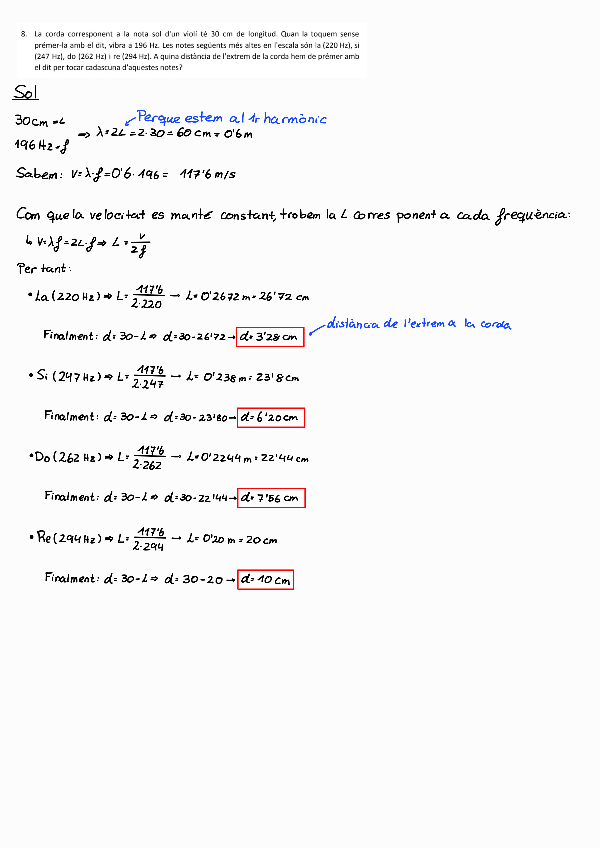 8. La corda corresponent a la nota sol d'un violí té 30 cm de longitud. Quan la toquem sense
prémer-la amb el dit, vibra a 196 Hz. Les notes següents més altes en l'escala són la (220 Hz), si
(247 Hz), do (262 Hz) i re (294 Hz). A quina distància de l'extrem de la corda hem de prémer amb
el dit per tocar cadascuna d'aquestes notes?
Sol
Perque estem al 1r harmònic
30 cm = L
⇒ λ = 2L = 2·30 = 60 cm = 0'6 m
196 Hz = f
Sabem: V = λ·f = 0'6 · 196 = 117'6 m/s
Com que la velocitat es manté constant, trobem la L corresponent a cada freqüència:
↳ V = λf = 2L·f ⇒ L = v/2f
Per tant:
• La (220 Hz) ⇒ L = 117'6/2·220 → L = 0'2672 m = 26'72 cm
distància de l'extrem a la corda
Finalment: d = 30 - L ⇒ d = 30 - 26'72 → d = 3'28 cm
• Si (247 Hz) ⇒ L = 117'6/2·247 → L = 0'238 m = 23'8 cm
Finalment: d = 30 - L ⇒ d = 30 - 23'80 → d = 6'20 cm
• Do (262 Hz) ⇒ L = 117'6/2·262 → L = 0'2244 m = 22'44 cm
Finalment: d = 30 - L ⇒ d = 30 - 22'44 → d = 7'56 cm
• Re (294 Hz) ⇒ L = 117'6/2·294 → L = 0'20 m = 20 cm
Finalment: d = 30 - L ⇒ d = 30 - 20 → d = 10 cm